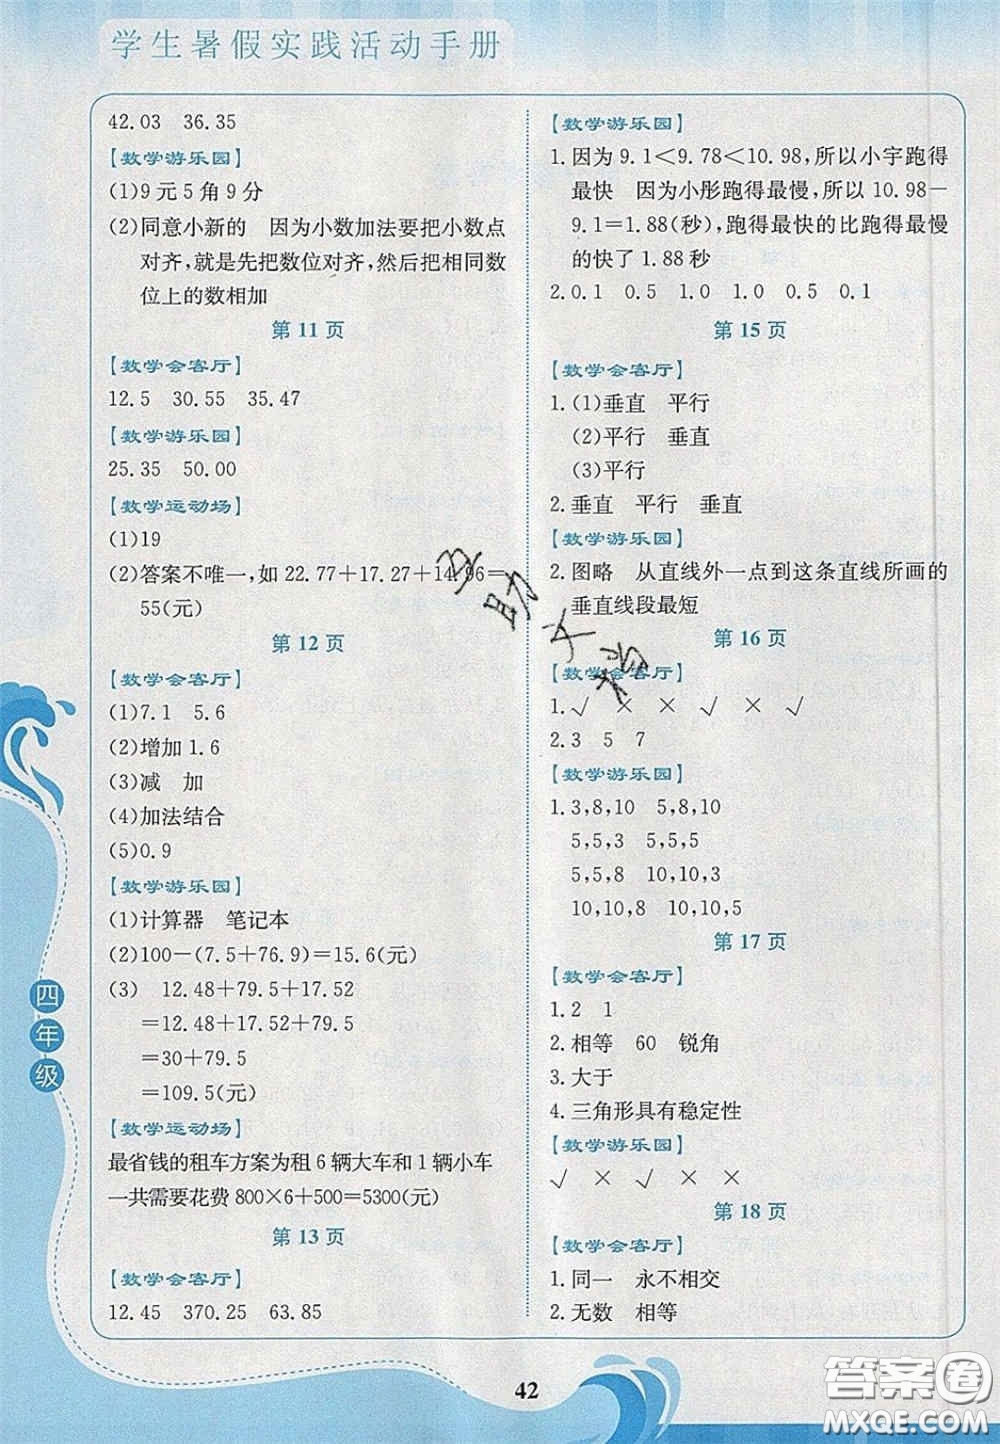 学生暑假实践活动手册
42.03 36.35
【数学游乐园】
(1)9元5角9分
(2)同意小新的 因为小数加法要把小数点
对齐,就是先把数位对齐,然后把相同数
位上的数相加
第11页
【数学会客厅】
12.5 30.55 35.47
【数学游乐园】
25.35 50.00
【数学运动场】
(1)19
(2)答案不唯一,如22.77+17.27+14.96=
55(元)
第12页
【数学会客厅】
(1)7.1 5.6
(2)增加1.6
(3)减 加
(4)加法结合
(5)0.9
【数学游乐园】
(1)计算器 笔记本
(2)100-(7.5+76.9)=15.6(元)
(3) 12.48+79.5+17.52
=12.48+17.52+79.5
=30+79.5
=109.5(元)
【数学运动场】
最省钱的租车方案为租6辆大车和1辆小车
一共需要花费800×6+500=5300(元)
第13页
【数学会客厅】
12.45 370.25 63.85
【数学游乐园】
1.因为9.1<9.78<10.98,所以小宇跑得
最快 因为小彤跑得最慢,所以10.98-
9.1=1.88(秒),跑得最快的比跑得最慢
的快了1.88秒
2.0.1 0.5 1.0 1.0 0.5 0.1
第15页
【数学会客厅】
1.(1)垂直 平行
(2)平行 垂直
(3)平行
2.垂直 平行 垂直
【数学游乐园】
2.图略 从直线外一点到这条直线所画的
垂直线段最短
第16页
【数学会客厅】
1.√ × × √ × √
2.3 5 7
【数学游乐园】
1.3,8,10 5,8,10
5,5,3 8,8,5
5,5,8 10,10,3
10,10,8 10,10,5
第17页
【数学会客厅】
1.2 1
2.相等 60 锐角
3.大于
4.三角形具有稳定性
【数学游乐园】
√ × √ × ×
第18页
【数学会客厅】
1.同一 永不相交
2.无数 相等
四年级
42
答案圈
MXQE.COM